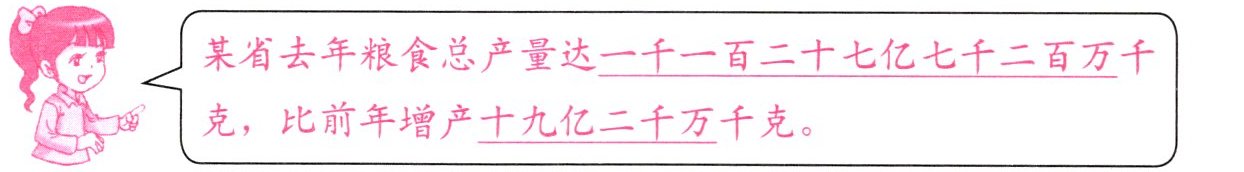 某省去年粮食总产量达一千一百二十七亿七千二百万千
克，比前年增产十九亿二千万千克。